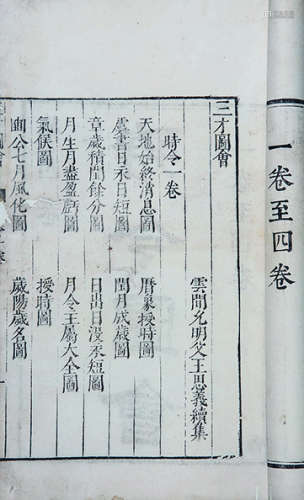 一卷至四卷
三才圖會
雲間允明父王思義續集
時令一卷
天地始終消息圖
曆象授時圖
虞書日永日短圖
閏月成歲圖
章歲積閏餘分圖
日出日沒永短圖
月生月盡盈虧圖
月令主屬大全圖
氣候圖
授時圖
豳公七月風化圖
歲陽歲名圖